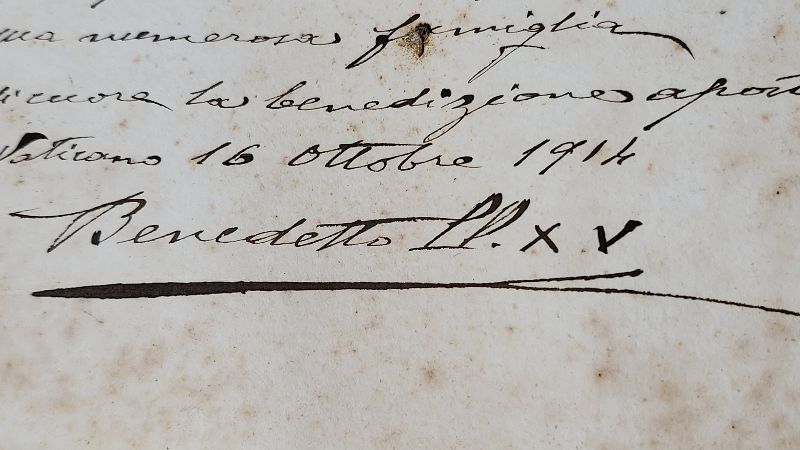 numerosa famiglia
cuore la benedizione apost
Vaticano 16 Ottobre 1914
Benedetto PP. XV